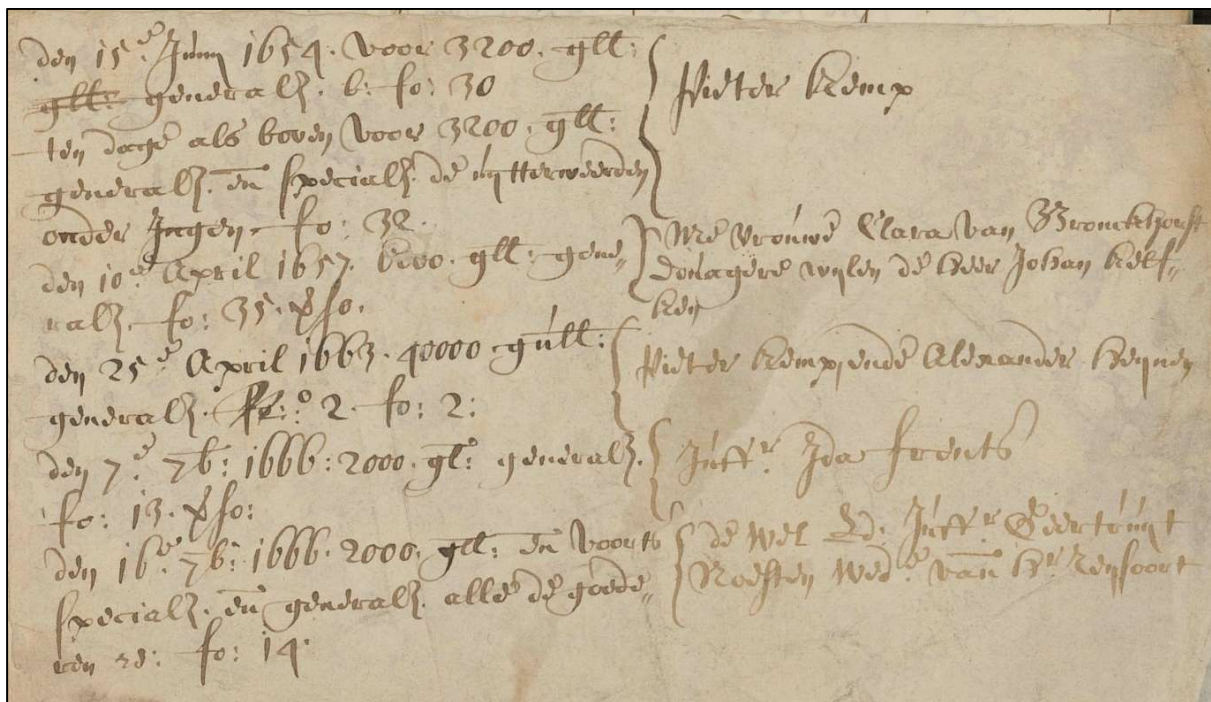 den 15.e Junij 1654. voor 3200. gll:
gll: generalh. b: fo: 30
ten dage als boven voor 3200. gll:
generalh. en specialh. de uytterweerden
onder Ingen. fo: 32.
den 10.e April 1657. 6000. gll: gene„
ralh. fo: 35. vso.
den 25.e April 1663. 40000 gull:
generalh. 2. fo: 2:
den 7.e 7b: 1666: 2000. gl: generalh.
fo: 13. vso:
den 16.e 7b: 1666. 2000. gll: en voorts
specialh. en generalh. alle de goede„
ren re: fo: 14.
Pieter Kemp
Me vrouwe Clara van Bronckhorst
douagere wijlen de heer Johan Kelf„
ken
Pieter Kemp, ende Alexander Heijnen
Juffr. Ida Frents
de Wel Ed: Juffr. Geertruijt
Noesten Wed.e van Hr. Rensoort